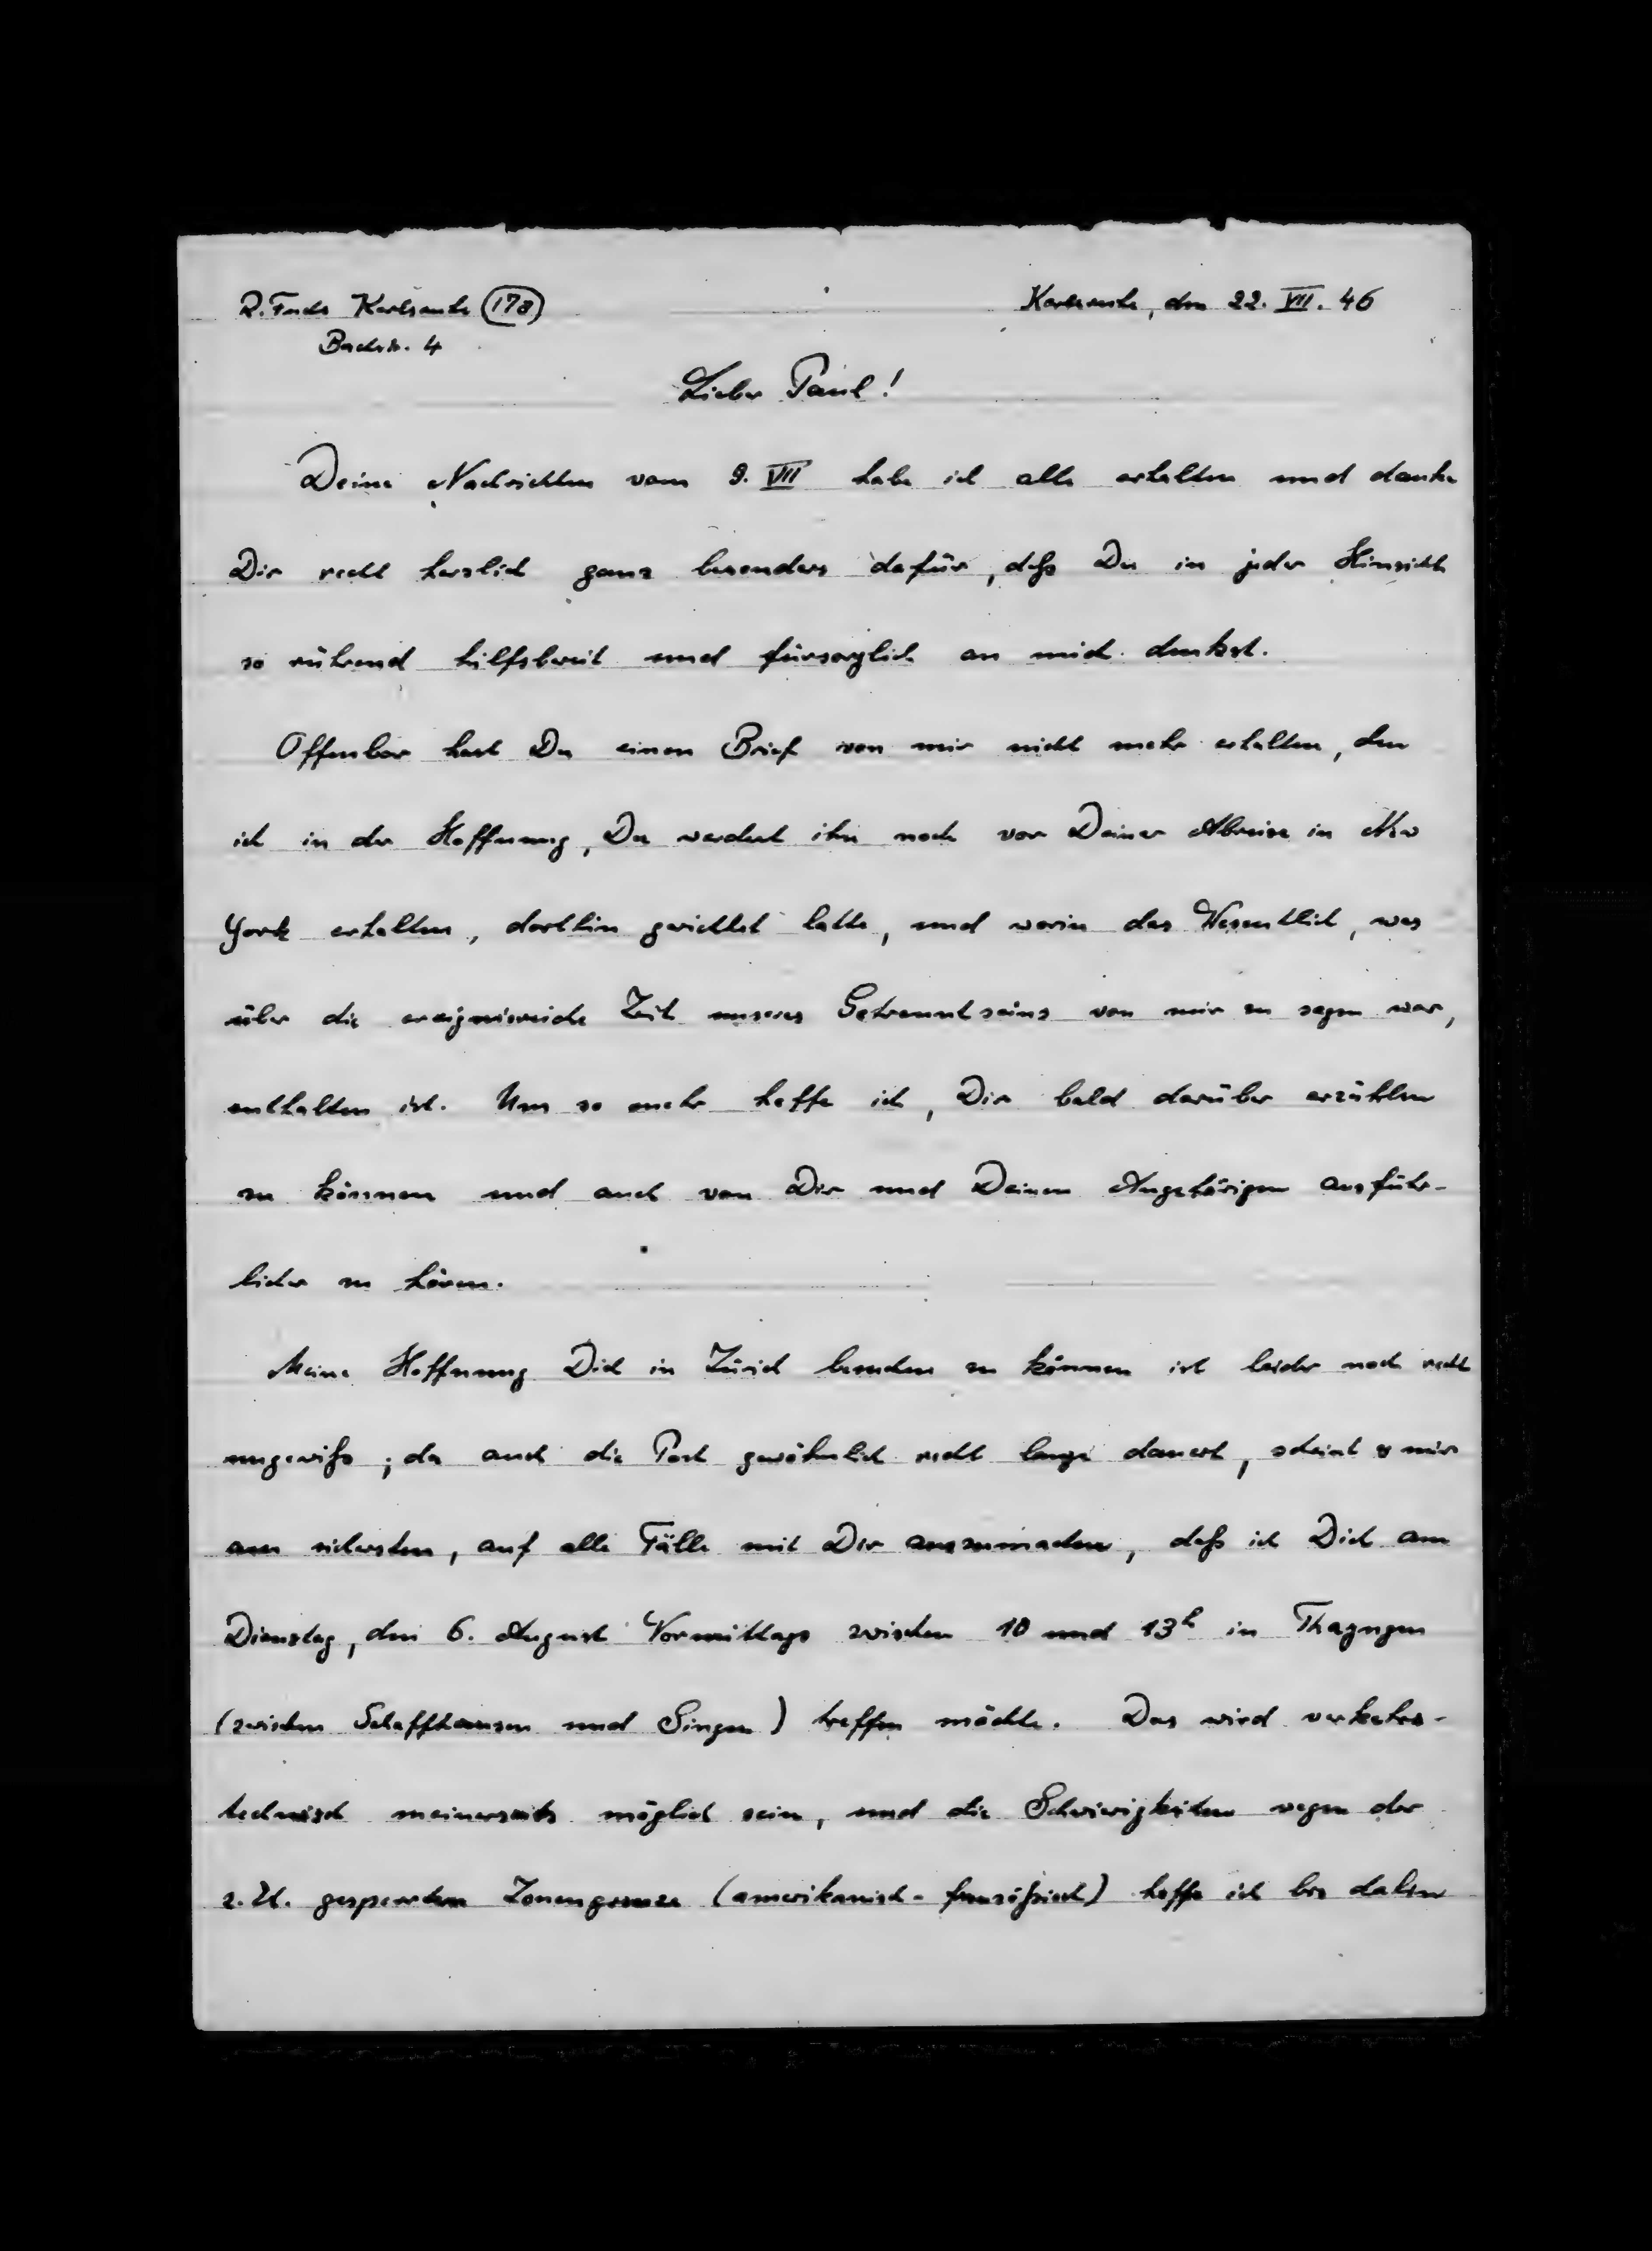 R. Fuchs Karlsruhe (17a)
Bachstr. 4
Karlsruhe, den 22. VII. 46
Lieber Paul!
Deine Nachrichten vom 9. VII habe ich alle erhalten und danke
Dir recht herzlich ganz besonders dafür, daß Du in jeder Hinsicht
so rührend hilfsbereit und fürsorglich an mich denkst.
Offenbar hast Du einen Brief von mir nicht mehr erhalten, den
ich in der Hoffnung, Du werdest ihn noch vor Deiner Abreise in New
York erhalten, dorthin gerichtet hatte, und worin das Wesentlich, was
über die ereignisreiche Zeit unseres Getrenntseins von mir zu sagen war,
enthalten ist. Um so mehr hoffe ich, Dir bald darüber erzählen
zu können und auch von Dir und Deinen Angehörigen ausführ-
licher zu hören.
Meine Hoffnung Dich in Zürich besuchen zu können ist leider noch recht
ungewiß; da auch die Post gewöhnlich recht lange dauert, scheint es mir
am sichersten, auf alle Fälle mit Dir auszumachen, daß ich Dich am
Dienstag, den 6. August Vormittags zwischen 10 und 13h in Thayngen
(zwischen Schaffhausen und Singen) treffen möchte. Das wird verkehrs-
technisch meinerseits möglich sein, und die Schwierigkeiten wegen der
z. Zt. gesperrten Zonengrenze (amerikanisch-französisch) hoffe ich bis dahin